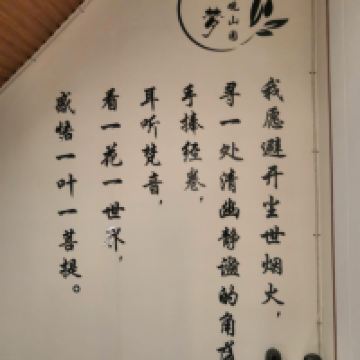 梦
观山园
我愿避开尘世烟火，
寻一处清幽静谧的角落
手捧经卷，
耳听梵音，
看一花一世界，
感悟一叶一菩提。